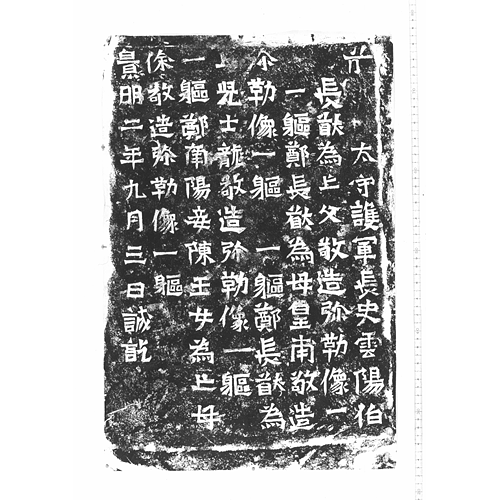 太守護軍長史雲陽伯
長猷為亡父敬造弥勒像一
一軀鄭長猷為母皇甫敬造
勒像一軀 一軀鄭長猷為
亡兒士龍敬造弥勒像一軀
一軀鄭南陽妾陳玉女為亡母
徐敬造弥勒像一軀
景明二年九月三日誡訖